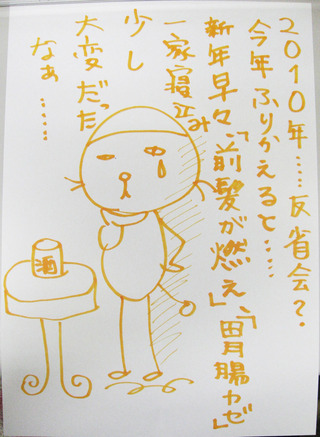 2010年……反省会?
今年ふりかえると……
新年早々、「前髪が燃え」、「胃腸カゼ」
一家寝込み
少し
大変だった
なぁ……
酒